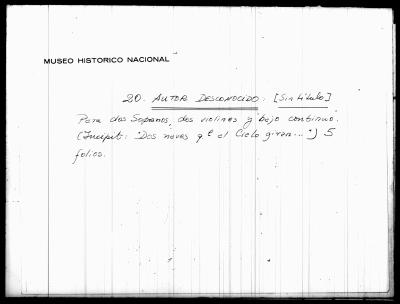 MUSEO HISTORICO NACIONAL
20. AUTOR DESCONOCIDO: [Sin título]
Para dos Sopranos, dos violines y bajo continuo.
(Incipit: "Dos naves q.e el Cielo giran...") 5
folios.